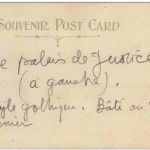 SOUVENIR POST CARD
e palais de Justice
(à gauche).
yle gothique. Bâti au
nier